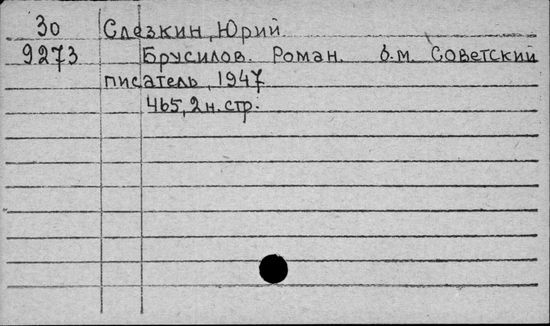 30 Слезкин, Юрий
9273 Брусилов. Роман. б.м. Советский
писатель, 1947
465, 2 н. стр.